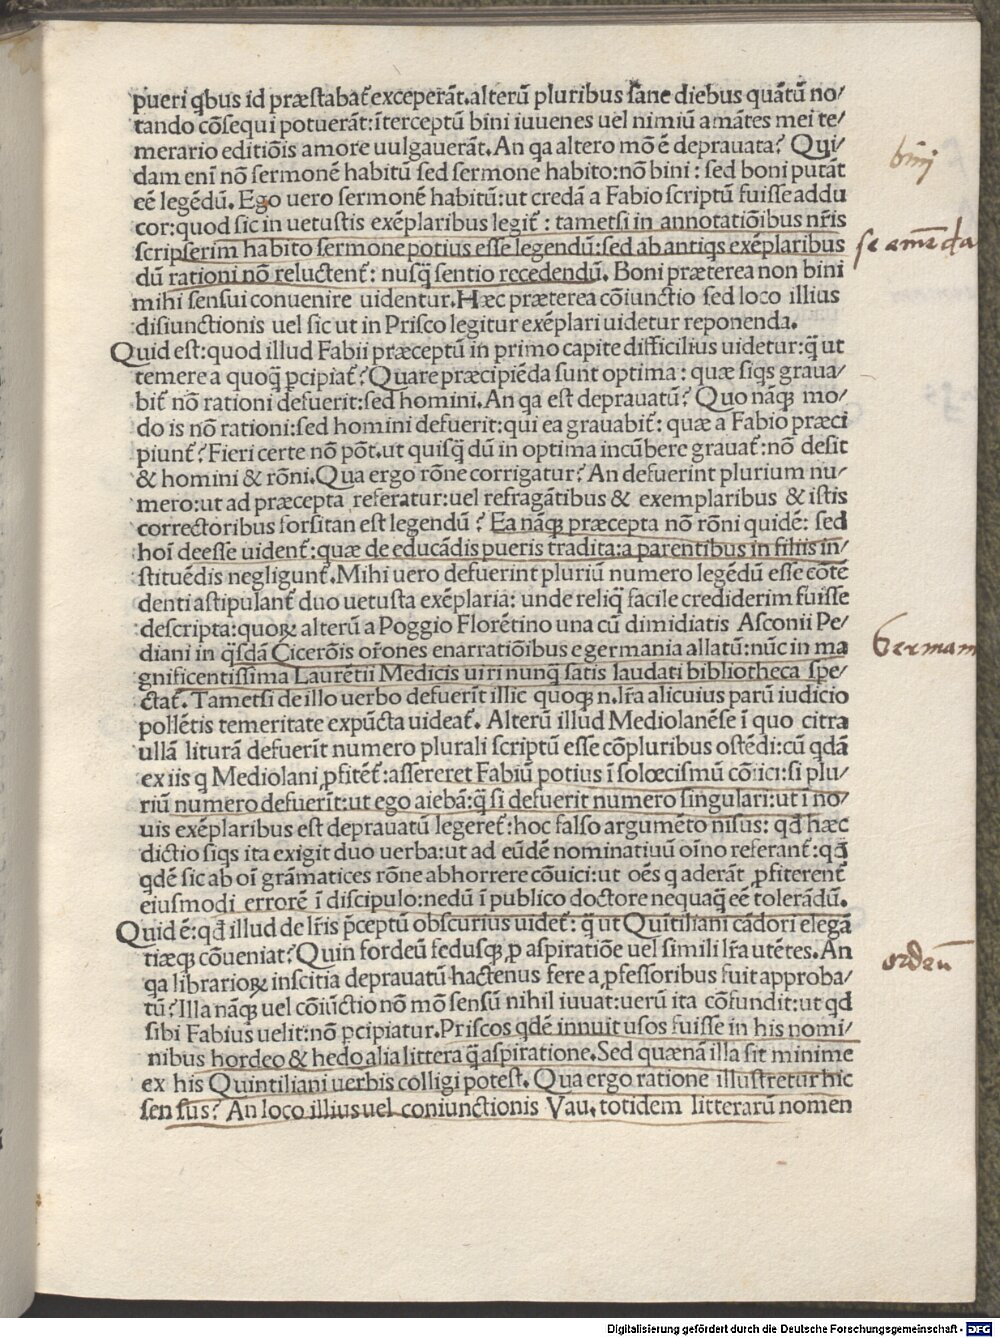 pueri q̈bus id præstabat̃ exceperãt.alterũ pluribus sane diebus quãtũ no/
tando cõsequi potuerãt:ĩterceptũ bini iuuenes uel nimiũ amãtes mei te/
merario editiõis amore uulgauerãt.An qa altero mõ ẽ deprauata? Qui/
dam eni nõ sermonẽ habitũ sed sermone habito:nõ bini : sed boni putãt
eẽ legẽdũ. Ego uero sermonẽ habitũ:ut credã a Fabio scriptũ fuisse addu
cor:quod sic in uetustis exẽplaribus legit̃ : tametsi in annotatiõibus nr̃is
scripserim habito sermone potius esse legendũ:sed ab antiqs exẽplaribus
dũ rationi nõ reluctent̃: nusq̈ sentio recedendũ. Boni præterea non bini
mihi sensui conuenire uidentur.Hæc præterea cõiunctio sed loco illius
disiunctionis uel sic ut in Prisco legitur exẽplari uidetur reponenda.
Quid est:quod illud Fabii præceptũ in primo capite difficilius uidetur:q̈ ut
temere a quoq̈ ꝑcipiat̃?Quare præcipiẽda sunt optima : quæ siqs graua/
bit̃ nõ rationi defuerit:sed homini.An qa est deprauatũ? Quo nãqꝫ mo/
do is nõ rationi:sed homini defuerit:qui ea grauabit̃: quæ a Fabio præci
piunt̃?Fieri certe nõ põt.ut quisq̈ dũ in optima incũbere grauat̃:nõ desit
& homini & rõni.Qua ergo rõne corrigatur? An defuerint plurium nu/
mero:ut ad præcepta referatur:uel refragãtibus & exemplaribus & istis
correctoribus forsitan est legendũ ? Ea nãqꝫ præcepta nõ rõni quidẽ: sed
hoĩ deesse uident̃:quæ de educãdis pueris tradita:a parentibus in filiis in/
stituẽdis negligunt̃.Mihi uero defuerint pluriũ numero legẽdũ esse cõtẽ
denti astipulant̃ duo uetusta exẽplaria: unde reliq̈ facile crediderim fuisse
descripta:quoꝝ alterũ a Poggio Florẽtino una cũ dimidiatis Asconii Pe/
diani in q̈sdã Cicerõis or̃ones enarratiõibus e germania allatũ:nũc in ma
gnificentissima Laurẽtii Medicis uiri nunq̈ satis laudati bibliotheca spe/
ctat̃. Tametsi de illo uerbo defuerĩt illic quoqꝫ n.lr̃a alicuius parũ iudicio
pollẽtis temeritate expũcta uideat̃. Alterũ illud Mediolanẽse ĩ quo citra
ullã liturã defuerĩt numero plurali scriptũ esse cõpluribus ostẽdi:cũ q̈dã
ex iis q Mediolani ꝓfitẽt̃:assereret Fabiũ potius ĩ solœcismũ cõiici:si plu/
riũ numero defuerĩt:ut ego aiebã:q̈ si defuerit numero singulari:ut ĩ no/
uis exẽplaribus est deprauatũ legeret̃:hoc falso argumẽto nisus: qđ hæc
dictio siqs ita exigit duo uerba:ut ad eũdẽ nominatiuũ oĩno referant̃:qđ
qdẽ sic ab oĩ grãmatices rõne abhorrere cõuici:ut oẽs q aderãt ꝓfiterent̃
eiusmodi errorẽ ĩ discipulo:nedũ ĩ publico doctore nequaq̈ eẽ tolerãdũ.
Quid ẽ:qđ illud de lr̃is p̃ceptũ obscurius uidet̃: q̈ ut Quĩtiliani cãdori elegã
tiæqꝫ cõueniat?Quin fordeũ fedusqꝫ ꝓ aspiratiõe uel simili lr̃a utẽtes.An
qa librarioꝝ inscitia deprauatũ hactenus fere a ꝓfessoribus fuit approba/
tũ?Illa nãqꝫ uel cõiũctio nõ mõ sensũ nihil iuuat:uerũ ita cõfundit:ut qđ
sibi Fabius uelit:nõ ꝑcipiatur.Priscos qdẽ innuit usos fuisse in his nomi/
nibus hordeo & hedo alia littera q̈ aspiratione.Sed quænã illa sit minime
ex his Quintiliani uerbis colligi potest. Qua ergo ratione illustretur hic
sensus? An loco illius uel coniunctionis Vau.totidem litterarũ nomen
binj
se amẽda
Germam
ordeũ
Digitalisierung gefördert durch die Deutsche Forschungsgemeinschaft - DFG